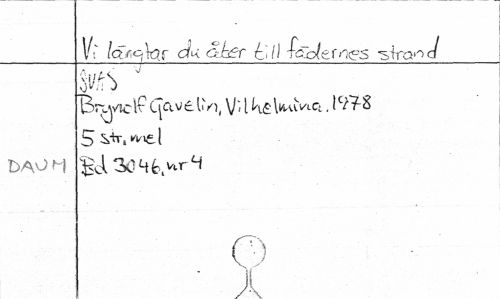 Vi längtar du åter till fädernes strand
SVAS
Brynolf Gavelin, Vilhelmina. 1978
5 str, mel
DAUM Bd 3046, nr 4